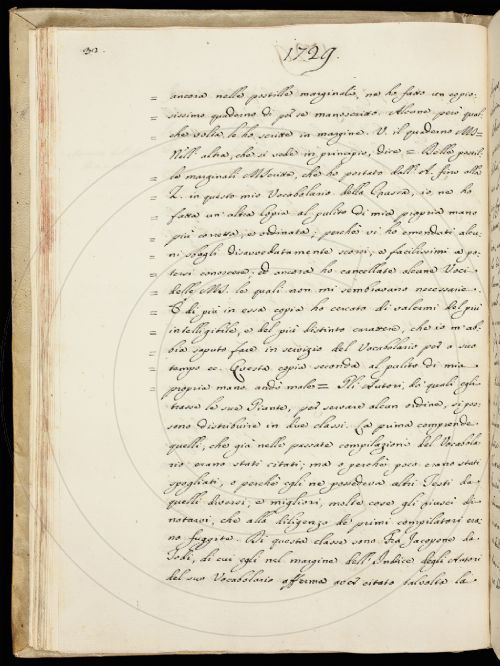 32.
1729.
= ancora nelle postille marginali, ne ho fatto un copio-
= sissimo quaderno di per se manoscritto. Alcune però qual
= che volta le ho scritte in margine. V. il quaderno MS=
= Nell' altra, che si vede in principio, dice = Delle postil-
= le marginali MScritte, che ho portato dall' A. fino alla
= Z. in questo mio Vocabolario della Crusca, io ne ho
= fatta un' altra Copia al pulito di mia propria mano
= più corretta, e ordinata; perchè vi ho emendati alcu-
= ni sbagli disavvedutamente scorsi, e facilissimi a po-
= tersi conoscere; ed ancora ho cancellate alcune Voci
= delle MS. le quali non mi sembravano necessarie.
= E di più in essa copia ho cercato di valermi del più
= intelligibile, e del più distinto carattere, che io m' ab-
= bia saputo fare in servizio del Vocabolario per a suo
= tempo ec. Questa copia seconda al pulito di mia
= propria mano andò male = Gli Autori, da' quali egli
trasse le sue Giunte, per servare alcun ordine, si pos-
sono distribuire in due classi. La prima comprende
quelli, che già nelle passate compilazioni del Vocabola-
rio erano stati citati; ma o perchè poco erano stati
spogliati, o perchè egli ne possedeva altri Testi da
quelli diversi, e migliori, molte cose gli riuscì di
notarvi, che alla diligenza de' primi compilatori era-
no fuggite. Di questa classe sono Fra Jacopone da
Todi, di cui egli nel margine dell' Indice degli Autori
del suo Vocabolario afferma aver citato talvolta la